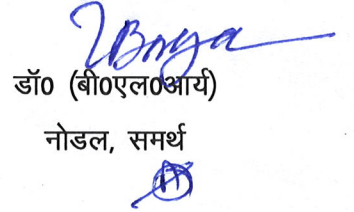 डॉ0 (बी0एल0आर्य)
नोडल, समर्थ